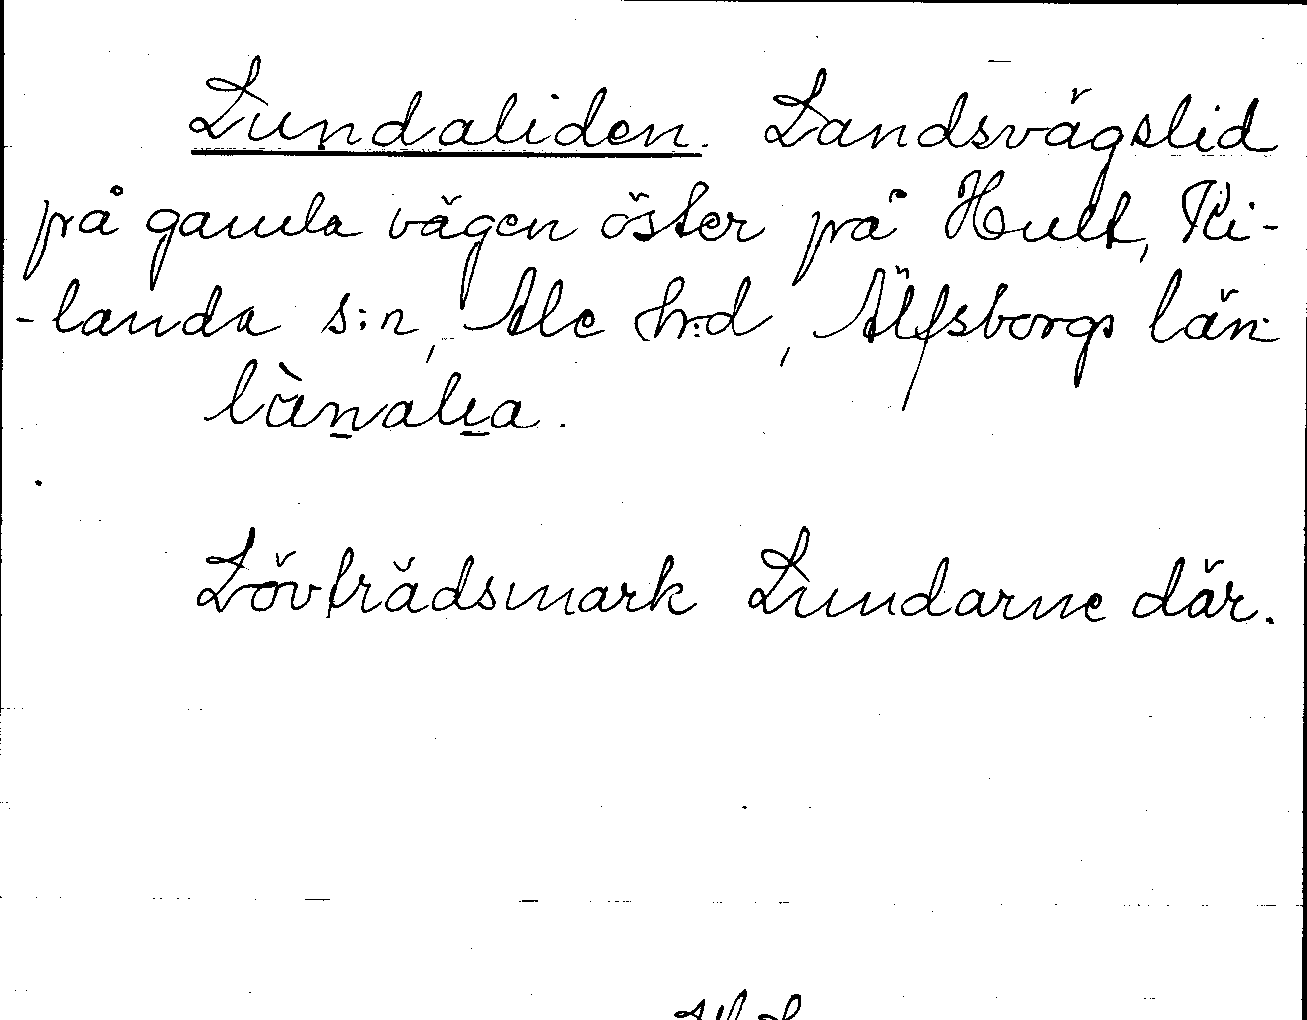 Lundaliden. Landsvägslid
på gamla vägen öster på Hult, Ki-
-landa s:n, Ale h:d, Älfsborgs län
Lövträdsmark Lundarne där.